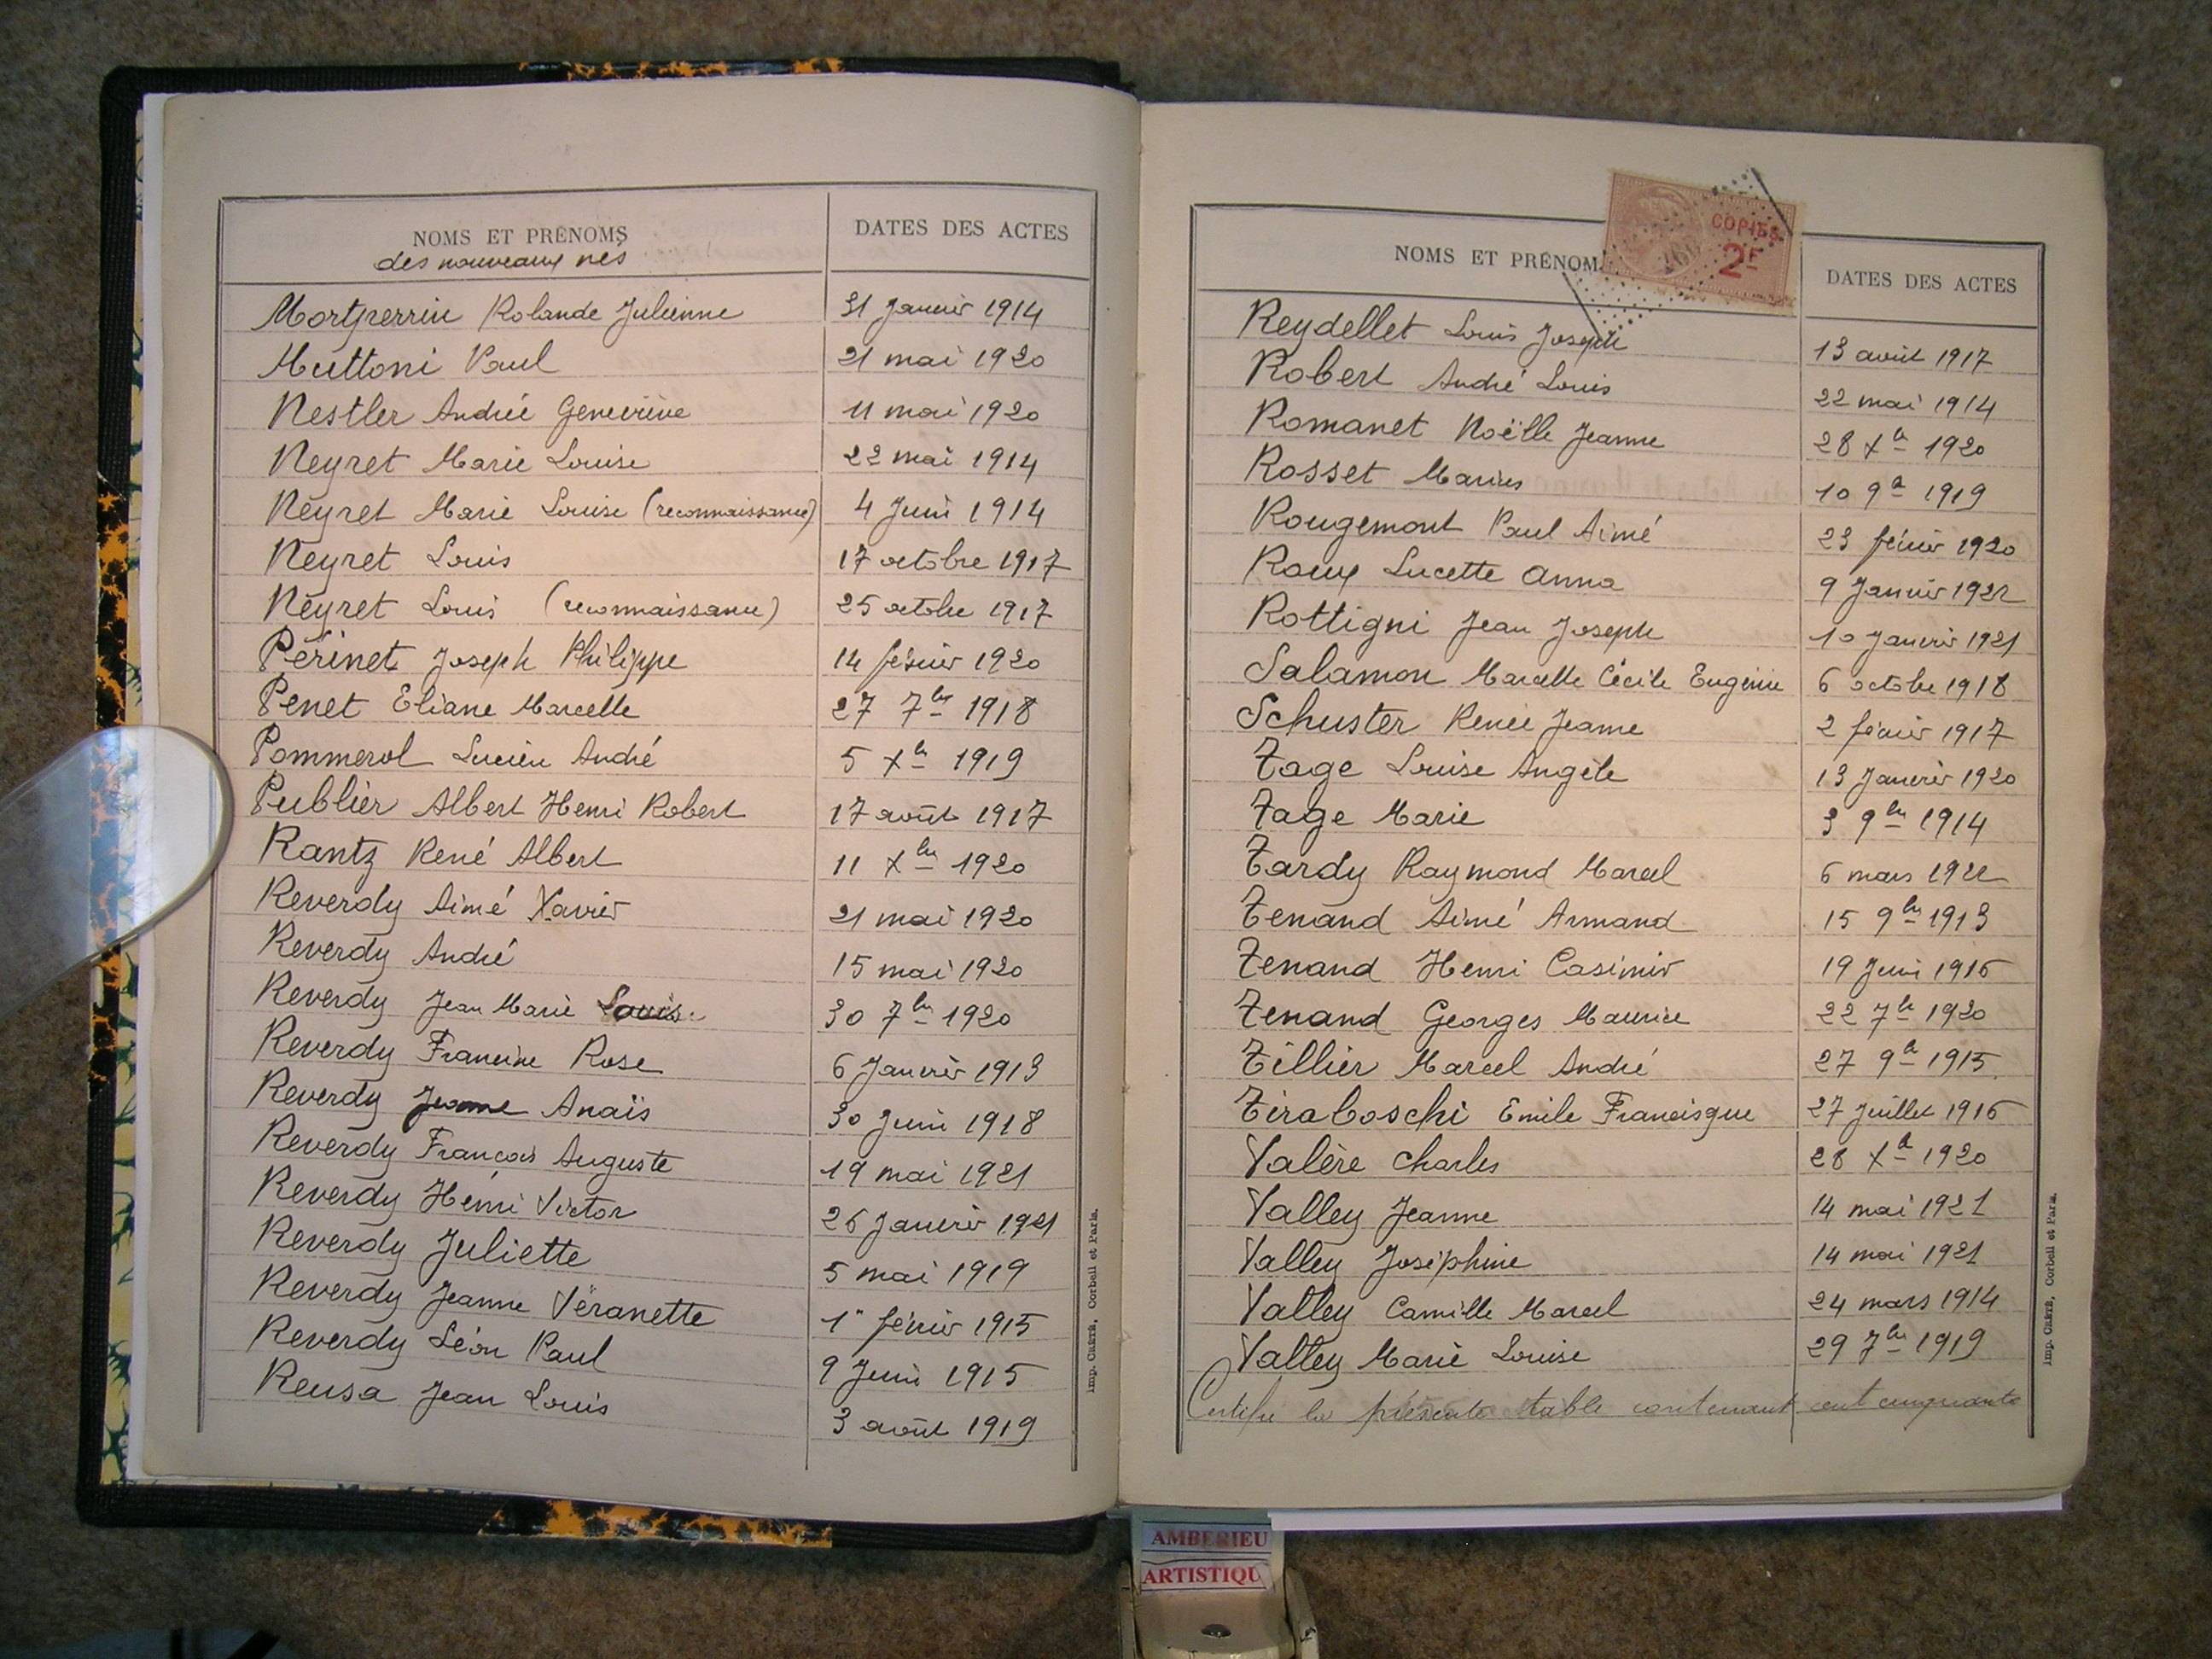 NOMS ET PRÉNOMS DATES DES ACTES
des nouveaux nés
Montperrin Rolande Julienne 31 Janvier 1914
Muttoni Paul 21 mai 1920
Nestler Andrée Geneviève 11 mai 1920
Neyret Marie Louise 22 mai 1914
Neyret Marie Louise (reconnaissance) 4 Juin 1914
Neyret Louis 17 octobre 1917
Neyret Louis (reconnaissance) 25 octobre 1917
Périnet Joseph Philippe 14 février 1920
Penet Eliane Marcelle 27 7bre 1918
Pommerol Lucien André 5 Xbre 1919
Publier Albert Henri Robert 17 août 1917
Rantz René Albert 11 Xbre 1920
Reverdy Aimé Xavier 21 mai 1920
Reverdy André 15 mai 1920
Reverdy Jean Marie Louis 30 7bre 1920
Reverdy Francine Rose 6 Janvier 1913
Reverdy Jeanne Anaïs 30 Juin 1918
Reverdy François Auguste 19 mai 1921
Reverdy Henri Victor 26 Janvier 1921
Reverdy Juliette 5 mai 1919
Reverdy Jeanne Véranette 1er février 1915
Reverdy Léon Paul 9 Juin 1915
Reusa Jean Louis 3 août 1919
Imp. CRÉTÉ, Corbeil et Paris.
COPIES
2F
NOMS ET PRÉNOM DATES DES ACTES
Reydellet Louis Joseph 13 août 1917
Robert André Louis 22 mai 1914
Romanet Noëlle Jeanne 28 Xbre 1920
Rosset Marius 10 9bre 1919
Rougemont Paul Aimé 23 février 1920
Roux Lucette Anna 9 Janvier 1922
Rottigni Jean Joseph 10 Janvier 1921
Salamon Marcelle Cécile Eugénie 6 octobre 1918
Schuster Renée Jeanne 2 février 1917
Tage Louise Angèle 13 Janvier 1920
Tage Marie 3 9bre 1914
Tardy Raymond Marcel 6 mars 1922
Tenand Aimé Armand 15 9bre 1913
Tenand Henri Casimir 19 Juin 1916
Tenand Georges Maurice 22 7bre 1920
Tillier Marcel André 27 9bre 1915
Tiraboschi Emile Francisque 27 Juillet 1916
Valère Charles 28 Xbre 1920
Valley Jeanne 14 mai 1921
Valley Joséphine 14 mai 1921
Valley Camille Marcel 24 mars 1914
Valley Marie Louise 29 7bre 1919
Certifié la présente table contenant cent cinquante
Imp. CRÉTÉ, Corbeil et Paris.
AMBERIEU
ARTISTIQU